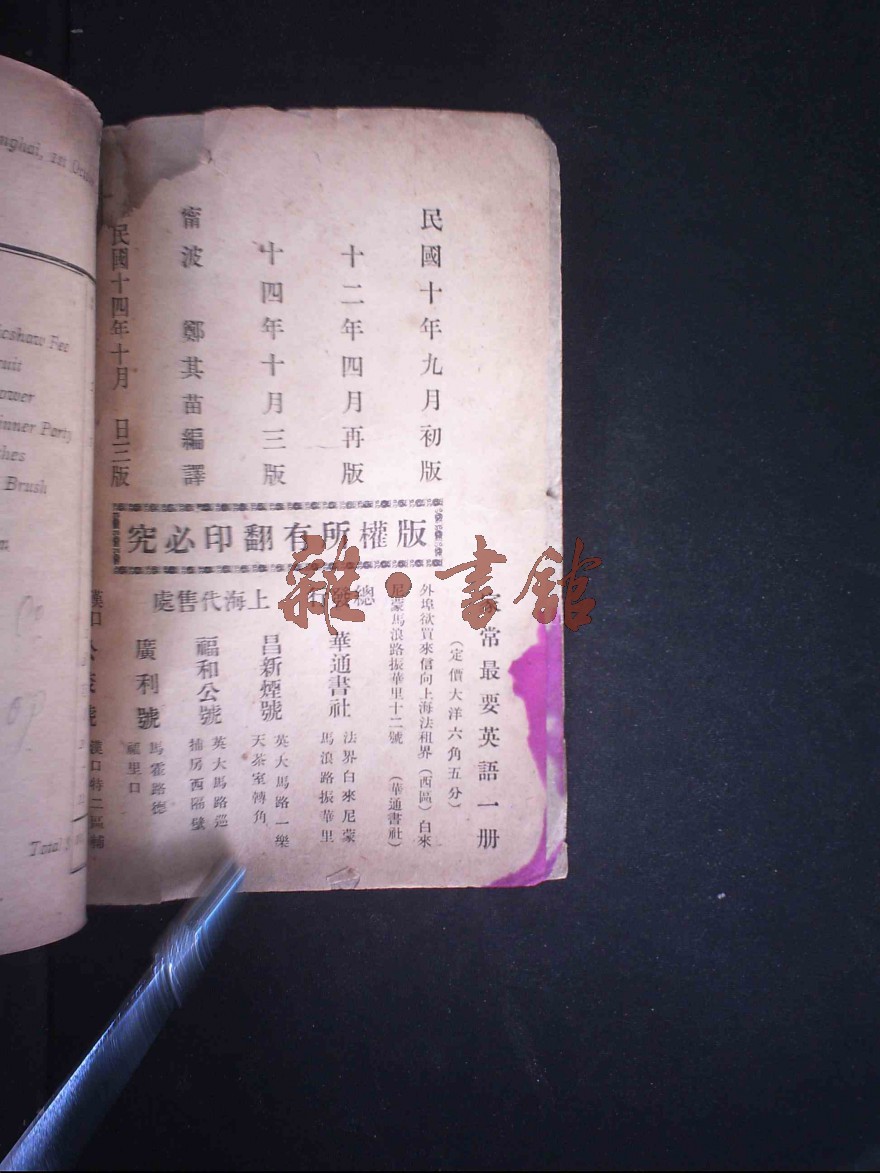 民國十年九月初版
十二年四月再版
十四年十月三版
甯波 鄭其苗編譯
民國十四年十月 日三版
版權所有翻印必究
家常最要英語一册
(定價大洋六角五分)
外埠欲買來信向上海法租界(西區)白來
尼蒙馬浪路振華里十二號 (華通書社)
總發行
華通書社
法界白來尼蒙
馬浪路振華里
上海代售處
昌新煙號
英大馬路一樂
天茶室轉角
福和公號
英大馬路巡
捕房西隔壁
廣利號
馬霍路德
福里口
漢口
漢口特二區
雜·書館
nghai,
icshaw Fee
ruit
lower
inner Party
thes
Brush
Total